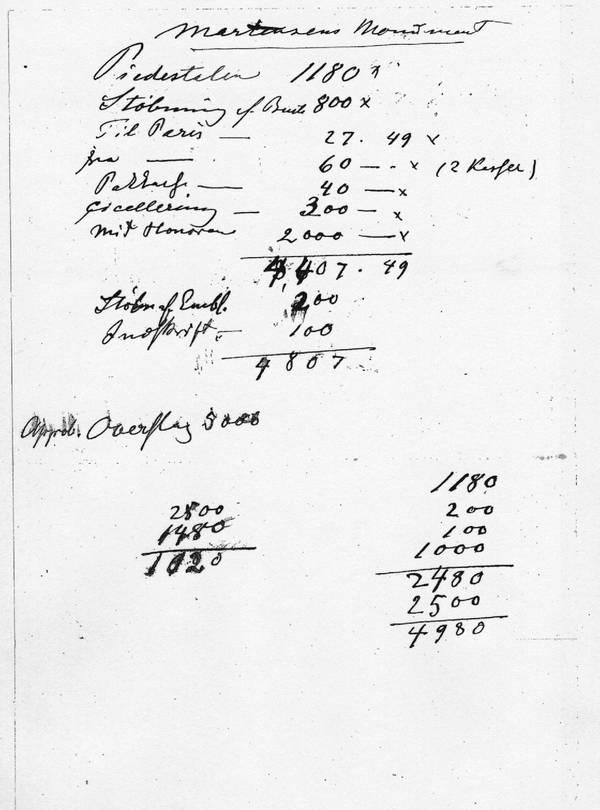 Martensens Monument
Piedestalen 1180 x
Støbning af Buste 800 x
Til Paris — 27. 49 x
fra — 60 — . x (2 Kasser)
— 40 — x
Cicellering — 300 — x
Mit Honorar 2000 — x
4,407. 49
Støbn af Embl. 200
Indskrift. — 100
4807
Approb. Overslag 5000
1180
2500 200
1480 100
1020 1000
2480
2500
4980